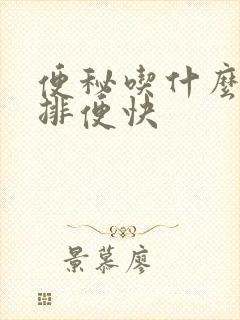 便秘喫什麼
排便快
景慕廖